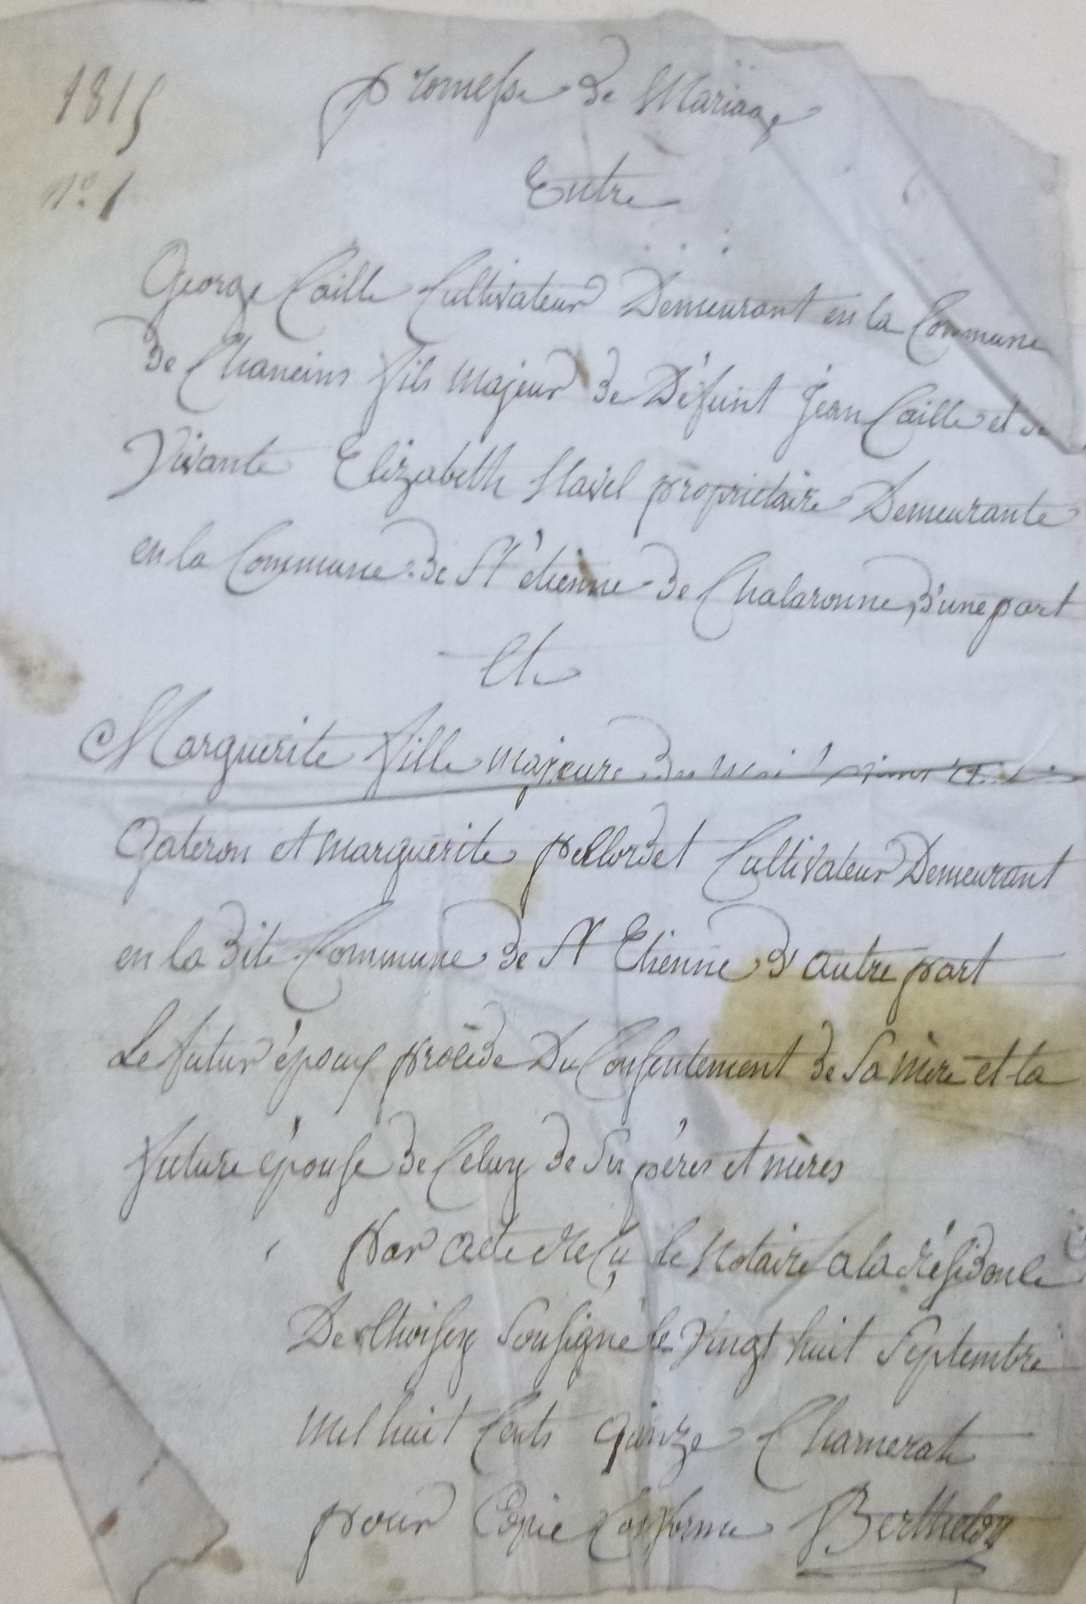 1815
promesse de Mariage
n.º 1
Entre
George Caille Cultivateur Demeurant en la Commune
de Chaneins fils majeur de Défunt jean Caille et de
Vivante Elizabeth propriétaire Demeurante
en la Commune de St étienne de Chalaronne, d'une part
Et
Marguerite fille majeure
Gateron et marguerite Cultivateur Demeurant
en la dite Commune de St Etienne d'autre part
Le futur époux procède Du Consentement de Sa mère et la
future épouse de Celuy de Ses pères et mères
par acte Reçu le Notaire a la résidence
De thoissey Soussigné le Vingt huit Septembre
mil huit Cents quinze Chamerat
pour Copie Conforme Berthelon